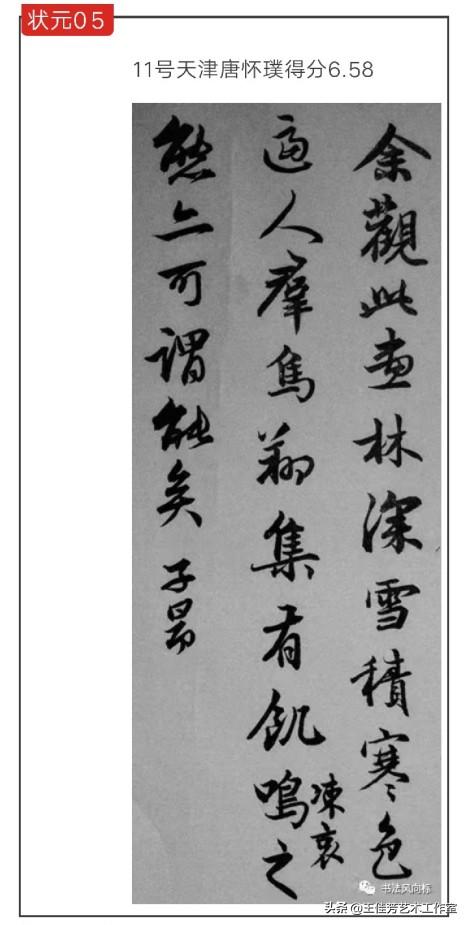 状元05
11号天津唐怀璞得分6.58
余觀此畫林深雪積寒色
逼人羣鳥翔集有飢鳴之
凍哀
態亦可謂能矣 子昂
书法风向标
头条@王佳芳艺术工作室